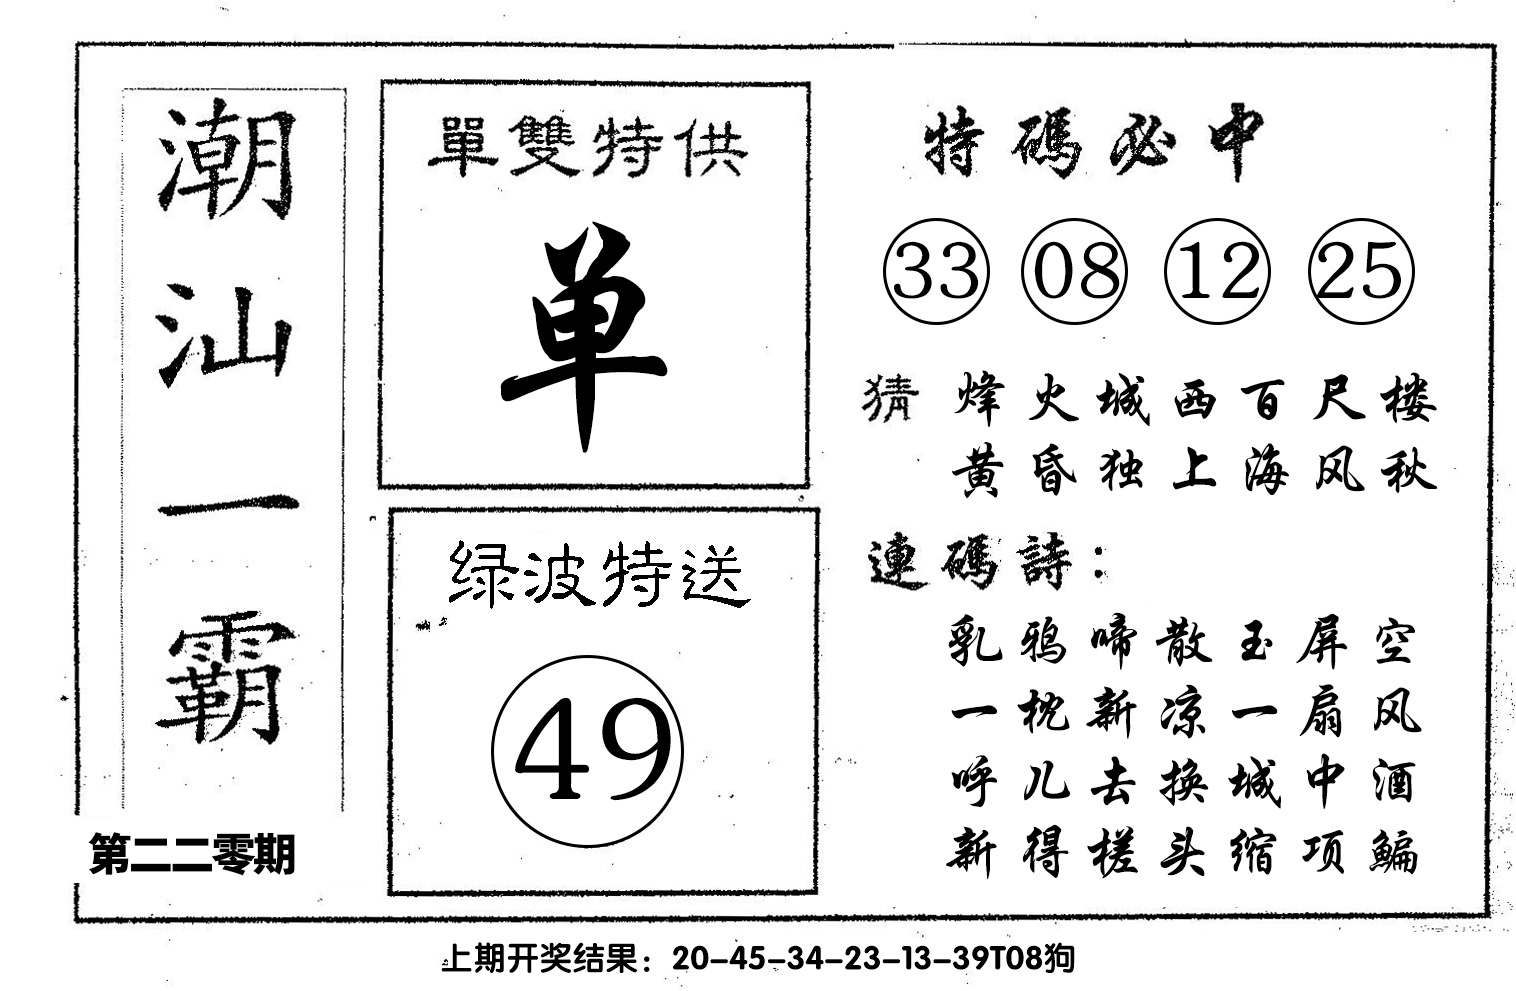 潮汕一霸
第二二零期
單雙特供
单
绿波特送
49
特碼必中
33 08 12 25
猜 烽火城西百尺楼
黄昏独上海风秋
連碼詩：
乳鸦啼散玉屏空
一枕新凉一扇风
呼儿去换城中酒
新得槎头缩项鳊
上期开奖结果：20-45-34-23-13-39T08狗